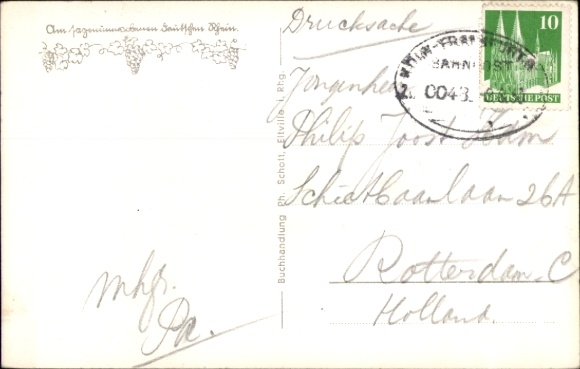 Am sagenumwobenen deutschen Rhein.
Drucksache
10
DEUTSCHE POST
KÖLN-FRANKFURT
BAHNPOST
0043
Jongenheer
Philip Joost
Schietbaanlaan 26A
Rotterdam. C
Holland.
mhgr.
Pa.
Buchhandlung Ph. Schott, Eltville i. Rhg.